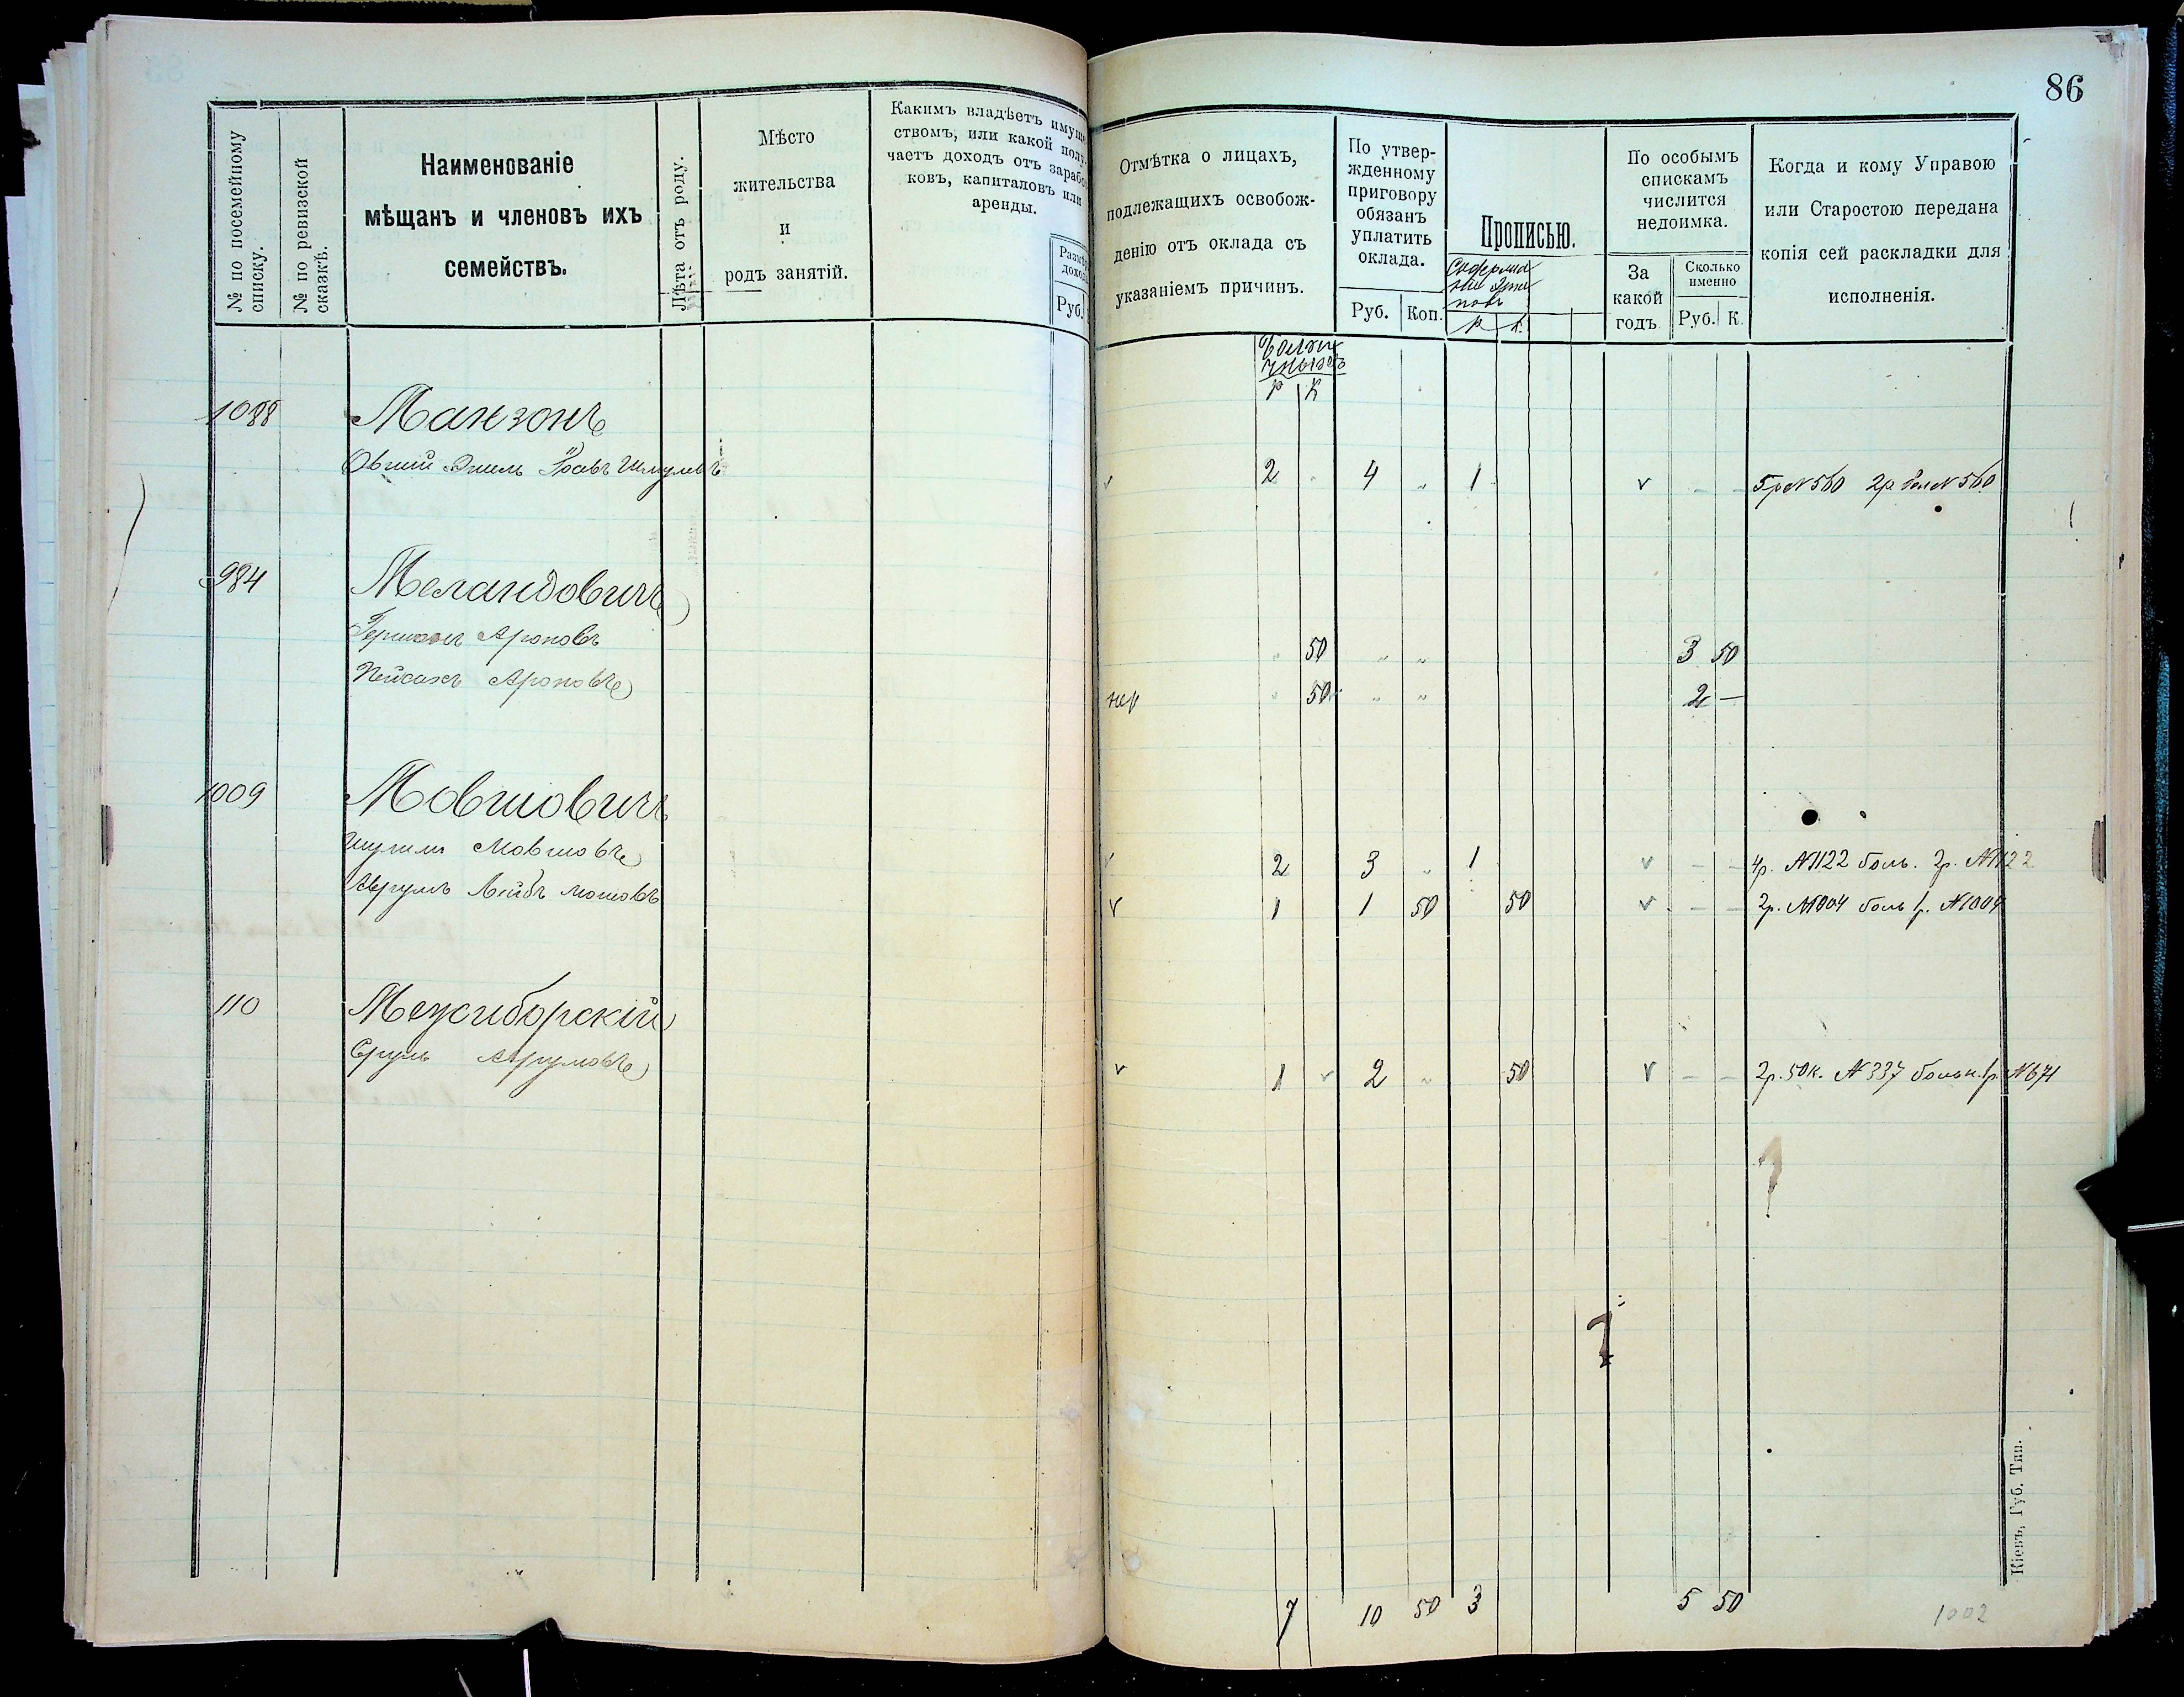 86
№ по посемейному списку.
№ по ревизской сказкѣ.
Наименованіе
мѣщанъ и членовъ ихъ
семействъ.
Лѣта отъ роду.
Мѣсто
жительства
и
родъ занятій.
Какимъ владѣетъ имуще
ствомъ, или какой полу
чаетъ доходъ отъ зарабо
ковъ, капиталовъ или
аренды.
Размѣ
доход
Руб.
Отмѣтка о лицахъ,
подлежащихъ освобож-
денію отъ оклада съ
указаніемъ причинъ.
По утвер-
жденному
приговору
обязанъ
уплатить
оклада.
Руб. Коп.
Прописью.
р к.
По особымъ
спискамъ
числится
недоимка.
За
какой
годъ
Сколько
именно
Руб. К.
Когда и кому Управою
или Старостою передана
копія сей раскладки для
исполненія.
Р К
1088 Манзонъ
Овшій Эмиль Іось Шмулевъ v 2 4 „ 1 v — — 5р N 560 2р бол N 560
984 Меландовичъ
Германъ Ароновъ „ 50 „ „ 3 50
Пейсахъ Ароновъ нер „ 50 „ „ 2 —
1009 Мовшовичъ
Шулим Мовшовъ v 2 3 „ 1 v — — 4р. N1122 боль. 2р. N1122
Аврумъ Лейбъ Мошковъ v 1 1 50 50 v — — 2р. N1004 боль 1р. N1004
110 Межиборскій
Сруль Аврумовъ v 1 v 2 „ 50 v — — 2р. 50к. N 337 больн. 1р. N671
7 10 50 3 5 50
1002
Кіевъ, Губ. Тип.